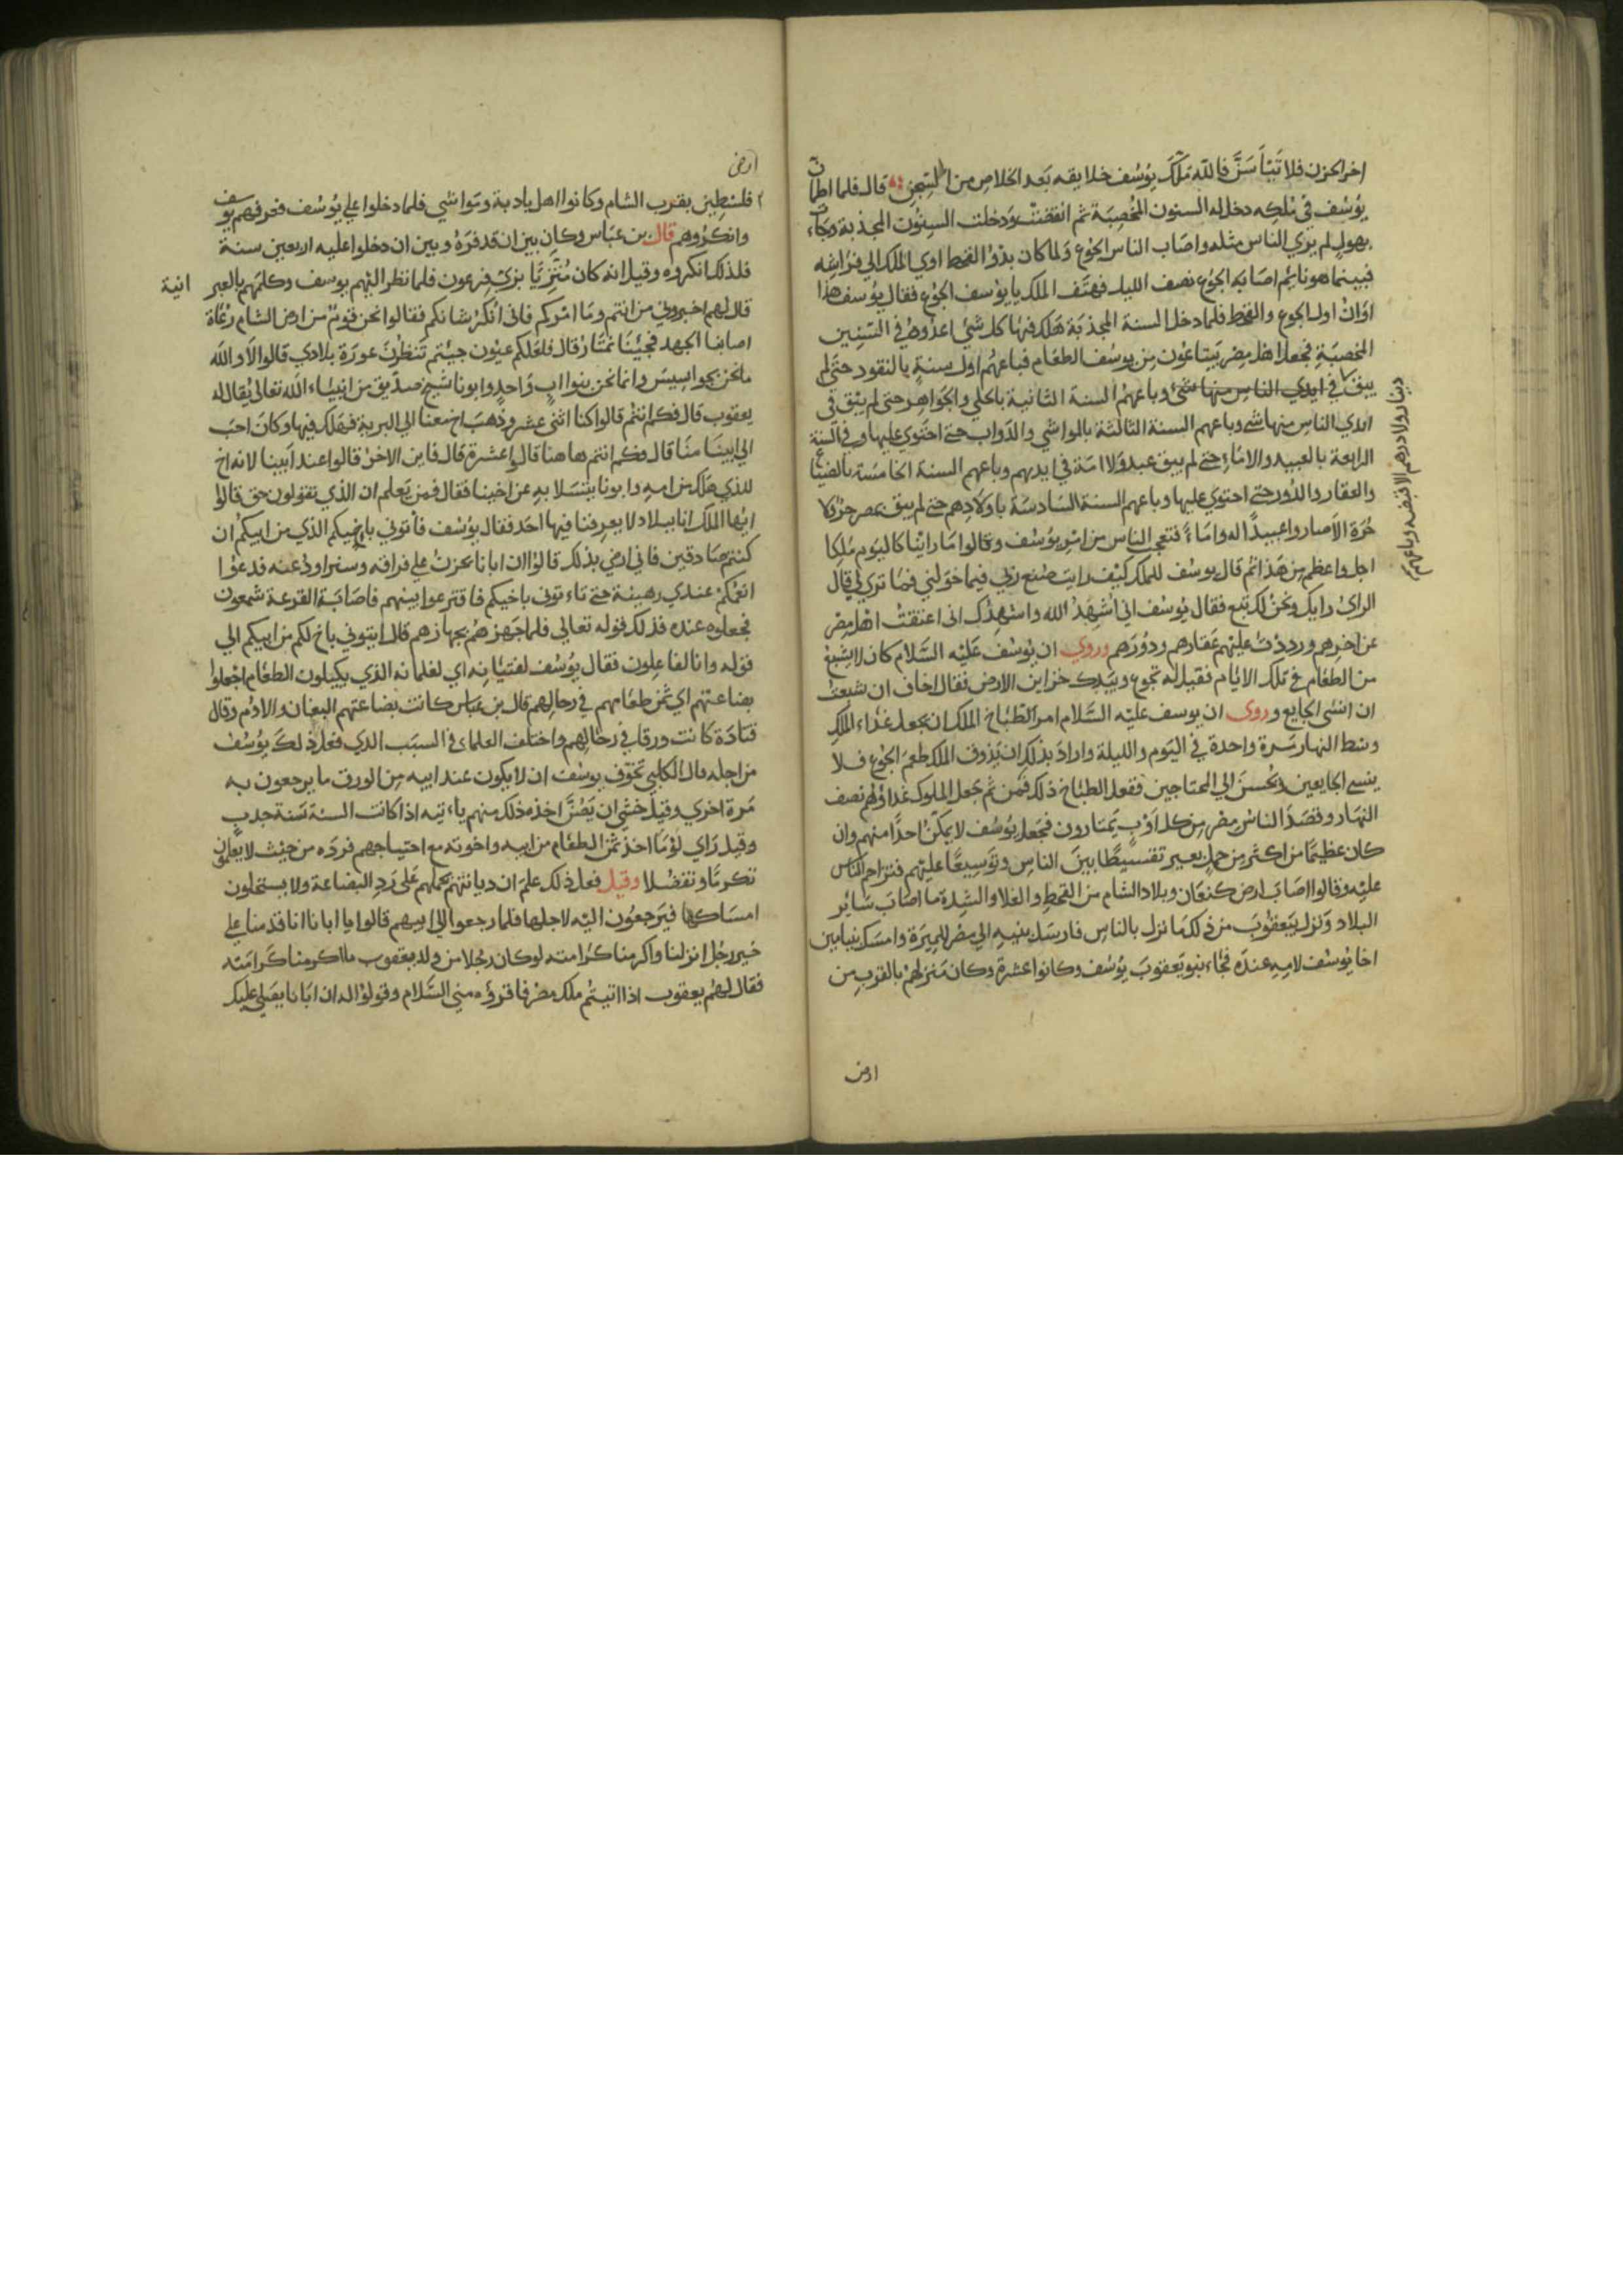 اخر الحزن فلا تيأسن فالله ملك يوسف خلايقه بعد الخلاص من السجن قال فلما اطمان
يوسف في ملكه دخل له السنون المخصبة ثم انقضت ودخلت السنون المجدبة وجاءت
بهول لم يري الناس مثله واصاب الناس الجوع ولما كان بدؤ القحط اوي الملك الي فراشه
فبينما هو نائم اصابه الجوع نصف الليل فهتف الملك يا يوسف الجوع فقال يوسف هذا
اوان اول الجوع والقحط فلما دخل السنة المجدبة هلك فيها كل شئ اعدوه في السنين
المخصبة فجعل اهل مصر يبتاعون من يوسف الطعام فباعهم اول سنة بالنقود حتي لم
يبق في ايدي الناس منها شئ وباعهم السنة الثانية بالحلي والجواهر حتى لم يبق في
ايدي الناس منها شي وباعهم السنة الثالثة بالمواشي والدواب حتي احتوي عليها وفي السنة
الرابعة بالعبيد والاماء حتي لم يبق عبد ولا امة في ايديهم وباعهم السنة الخامسة بالضياع
والعقار والدور حتي احتوي عليها وباعهم السنة السادسة باولادهم حتي لم يبق بمصر حر ولا
حرة الا صاروا عبيدا له واماء فتعجب الناس من امر يوسف وقالوا ما راينا كاليوم ملكا
اجل واعظم من هذا ثم قال يوسف للملك كيف رايت صنع ربي فيما خولني فما تري لي قال
الراي رايك ونحن لك تبع فقال يوسف اني اشهد الله واشهدك اني اعتقت اهل مصر
عن اخرهم ورددت عليهم عقارهم ودورهم وروي ان يوسف عليه السلام كان لا يشبع
من الطعام في تلك الايام فقيل له تجوع وبيدك خزاين الارض فقال اخاف ان شبعت
ان انسي الجايع وروى ان يوسف عليه السلام امر الطباخ الملك ان يجعل غداء الملك
وسط النهار مرة واحدة في اليوم والليلة واراد بذلك ان يذوق الملك طعم الجوع فلا
ينسي الجايعين ويحسن الي المحتاجين ففعل الطباخ ذلك فمن ثم جعل الملوك غداؤهم نصف
النهار وقصد الناس مصر من كل اوب يمتارون فجعل يوسف لا يمكن احدا منهم وان
كان عظيما من اكثر من حمل بعير تقسيطا بين الناس وتوسيعا عليهم فتزاحم الناس
عليه وقالوا اصاب ارض كنعان وبلاد الشام من القحط والغلا والشدة ما اصاب سائر
البلاد ونزل بيعقوب من ذلك ما نزل بالناس فارسل بنيه الي مصر للميرة وامسك بنيامين
اخا يوسف لامه عنده فجاء بنو يعقوب يوسف وكانوا عشرة وكان منزلهم بالقرب من
ارض
دينار ولا درهم الا قبضه وباعهم
ارض
فلسطين بقرب الشام وكانوا اهل بادية ومواشي فلما دخلوا علي يوسف فعرفهم يوسف
وانكروه قال بن عباس وكان بين ان قدفوه وبين ان دخلوا عليه اربعين سنة
فلذلك انكروه وقيل انه كان متزييا بزي فرعون فلما نظر اليهم يوسف وكلمهم بالعبر انية
قال لهم اخبروني من انتم وما امركم فاني انكر شانكم فقالوا نحن قوم من ارض الشام رعاة
اصابنا الجهد فجئنا نمتار قال فلعلكم عيون جيتم تنظرن عورة بلادي قالوا لا والله
ما نحن بجواسيس وانما نحن بنوا اب واحد وابونا شيخ صديق من انبياء الله تعالي يقال له
يعقوب قال فكم انتم قالوا كنا اثني عشر وذهب اخ معنا الي البرية فهلك فيها وكان احب
الي ابينا منا قال فكم انتم هاهنا قالوا عشرة قال فاين الاخر قالوا عند ابينا لانه اخ
للذي هلك من امه وابونا يتسلا به عن اخينا فقال فمن يعلم ان الذي تقولون حق قالوا
ايها الملك انا ببلاد لا يعرفنا فيها احد فقال يوسف فاتوني باخيكم الذي من ابيكم ان
كنتم صادقين فاني ارضي بذلك قالوا ان ابانا يحزن علي فراقه وسنراود عنه فدعوا
بعضكم عندي رهينة حتي تاءتوني باخيكم فاقترعوا بينهم فاصابة القرعة شمعون
فجعلوه عنده فذلك قوله تعالي فلما جهزهم بجهازهم قال ايتوني باخ لكم من ابيكم الي
قوله وانا لفاعلون فقال يوسف لفتيانه اي لغلمانه الذي يكيلون الطعام اجعلوا
بضاعتهم اي ثمن طعامهم في رحالهم قال بن عباس كانت بضاعتهم النعال والادم وقال
قتادة كانت ورقا في رحالهم واختلف العلماء في السبب الذي فعل ذلك يوسف
من اجله قال الكلبي تخوف يوسف ان لا يكون عند ابيه من الورق ما يرجعون به
مرة اخري وقيل خشي ان يضر اخذه ذلك منهم باءبيه اذا كانت السنة سنة جدب
وقيل راي لؤما اخذ ثمن الطعام من ابيه واخوته مع احتياجهم فرده من حيث لا يعلمون
تكرما وتفضلا وقيل فعل ذلك علم ان ديانتهم تحملهم على رد البضاعة ولا يستحلون
امساكها فيرجعون اليه لاجلها فلما رجعوا الي ابيهم قالوا يا ابانا انا قدمنا علي
خير رجل انزلنا واكرمنا كرامته لو كان رجلا من ولد يعقوب ما اكرمنا كرامته
فقال لهم يعقوب اذا اتيتم ملك مصر فاقرؤه مني السلام وقولوا له ان ابانا يصلي عليك